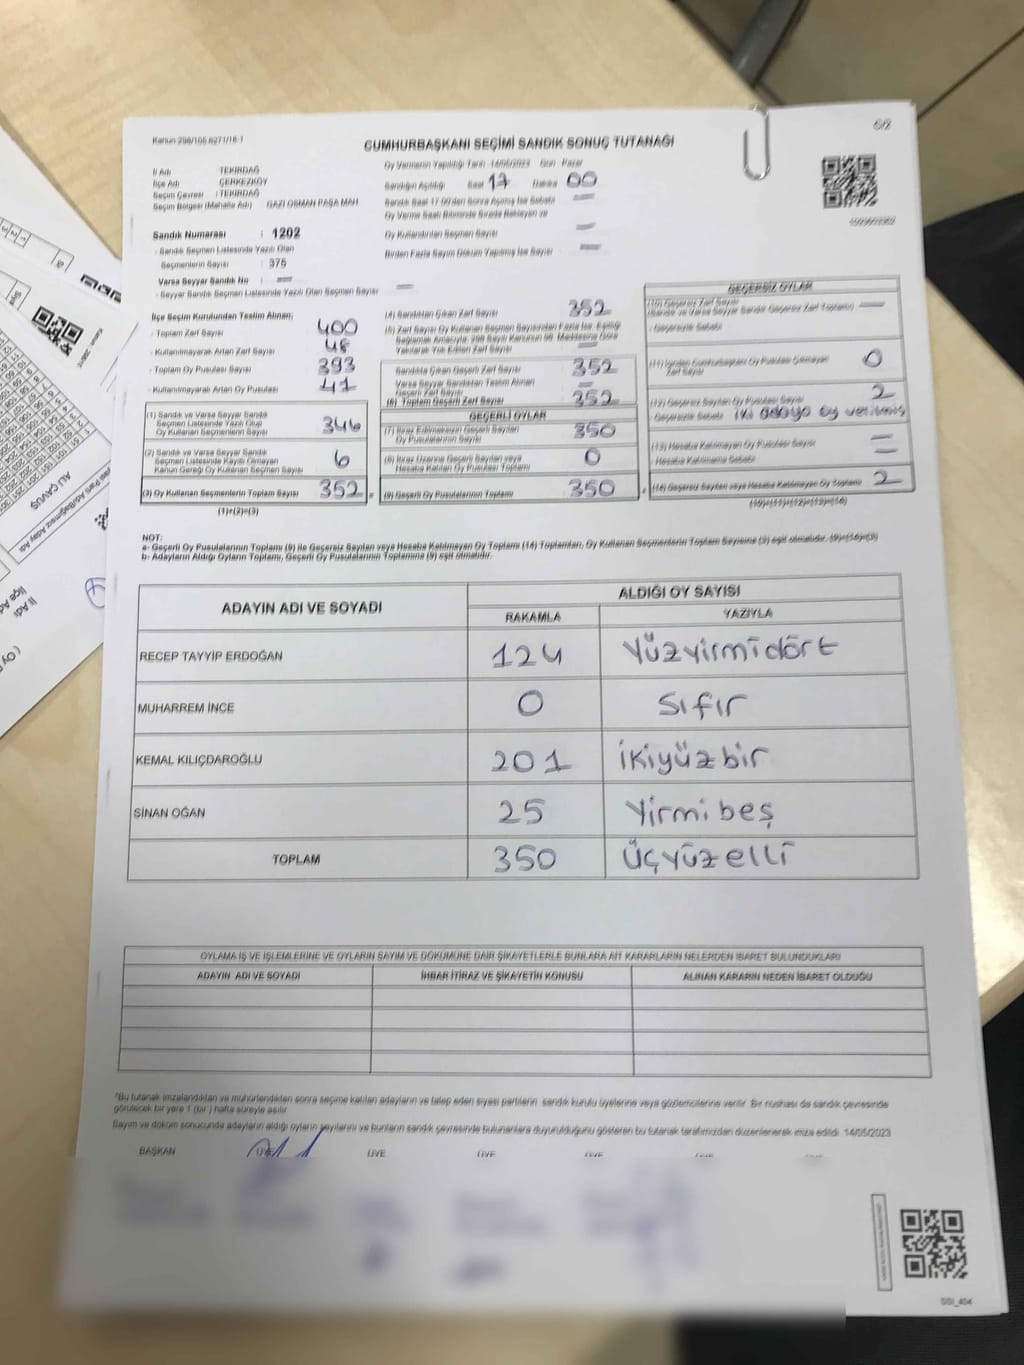 Kanun 298/105,6271/18-1
CUMHURBAŞKANI SEÇİMİ SANDIK SONUÇ TUTANAĞI
İl Adı TEKİRDAĞ
İlçe Adı ÇERKEZKÖY
Seçim Çevresi : TEKİRDAĞ
Seçim Bölgesi (Mahalle Adı) GAZİ OSMAN PAŞA MAH
Oy Vermenin Yapıldığı Tarih : 14/05/2023 Gün : Pazar
Sandığın Açıldığı Saat 17 Dakika 00
Sandık Saat 17.00'den Sonra Açılmış İse Sebebi
Oy Verme Saati Bitiminde Sırada Bekleyen ve
Oy Kullandırılan Seçmen Sayısı
Birden Fazla Sayım Döküm Yapılmış İse Sayısı
Sandık Numarası : 1202
- Sandık Seçmen Listesinde Yazılı Olan
Seçmenlerin Sayısı : 375
Varsa Seyyar Sandık No :
- Seyyar Sandık Seçmen Listesinde Yazılı Olan Seçmen Sayısı
İlçe Seçim Kurulundan Teslim Alınan;
- Toplam Zarf Sayısı 400
- Kullanılmayarak Artan Zarf Sayısı 48
- Toplam Oy Pusulası Sayısı 393
- Kullanılmayarak Artan Oy Pusulası 41
(1) Sandık ve Varsa Seyyar Sandık
Seçmen Listesinde Yazılı Olup
Oy Kullanan Seçmenlerin Sayısı 346
(2) Sandık ve Varsa Seyyar Sandık
Seçmen Listesinde Kayıtlı Olmayan
Kanun Gereği Oy Kullanan Seçmen Sayısı 6
(3) Oy Kullanan Seçmenlerin Toplam Sayısı 352
(1)+(2)=(3)
(4) Sandıktan Çıkan Zarf Sayısı 352
(5) Zarf Sayısı Oy Kullanan Seçmen Sayısından Fazla İse, Eşitliği
Sağlamak Amacıyla, 298 Sayılı Kanunun 98. Maddesine Göre
Yakılarak Yok Edilen Zarf Sayısı
Sandıkta Çıkan Geçerli Zarf Sayısı 352
Varsa Seyyar Sandıktan Teslim Alınan
Geçerli Zarf Sayısı
(6) Toplam Geçerli Zarf Sayısı 352
GEÇERLİ OYLAR
(7) İtiraz Edilmeksizin Geçerli Sayılan
Oy Pusulalarının Sayısı 350
(8) İtiraz Üzerine Geçerli Sayılan veya
Hesaba Katılan Oy Pusulası Toplamı 0
(9) Geçerli Oy Pusulalarının Toplamı 350
GEÇERSİZ OYLAR
(10) Geçersiz Zarf Sayısı
(Sandık ve Varsa Seyyar Sandık Geçersiz Zarf Toplamı)
- Geçersizlik Sebebi
(11) İçinden Cumhurbaşkanı Oy Pusulası Çıkmayan
Zarf Sayısı 0
(12) Geçersiz Sayılan Oy Pusulası Sayısı 2
- Geçersizlik Sebebi iki adaya oy verilmiş
(13) Hesaba Katılmayan Oy Pusulası Sayısı
- Hesaba Katılmama Sebebi
(14) Geçersiz Sayılan veya Hesaba Katılmayan Oy Toplamı 2
(10)+(11)+(12)+(13)=(14)
NOT:
a- Geçerli Oy Pusulalarının Toplamı (9) ile Geçersiz Sayılan veya Hesaba Katılmayan Oy Toplamı (14) Toplamları, Oy Kullanan Seçmenlerin Toplam Sayısına (3) eşit olmalıdır. (9)+(14)=(3)
b- Adayların Aldığı Oyların Toplamı, Geçerli Oy Pusulalarının Toplamına (9) eşit olmalıdır.
ADAYIN ADI VE SOYADI ALDIĞI OY SAYISI
RAKAMLA YAZIYLA
RECEP TAYYİP ERDOĞAN 124 Yüzyirmidört
MUHARREM İNCE 0 Sıfır
KEMAL KILIÇDAROĞLU 201 İkiyüzbir
SİNAN OĞAN 25 Yirmibeş
TOPLAM 350 Üçyüzelli
OYLAMA İŞ VE İŞLEMLERİNE VE OYLARIN SAYIM VE DÖKÜMÜNE DAİR ŞİKAYETLERLE BUNLARA AİT KARARLARIN NELERDEN İBARET BULUNDUKLARI
ADAYIN ADI VE SOYADI İHBAR İTİRAZ VE ŞİKAYETİN KONUSU ALINAN KARARIN NEDEN İBARET OLDUĞU
*Bu tutanak imzalandıktan ve mühürlendikten sonra seçime katılan adayların ve talep eden siyasi partilerin sandık kurulu üyelerine veya gözlemcilerine verilir. Bir nüshası da sandık çevresinde
görülecek bir yere 1 (bir) hafta süreyle asılır.
Sayım ve döküm sonucunda adayların aldığı oyların sayılarını ve bunların sandık çevresinde bulunanlara duyurulduğunu gösteren bu tutanak tarafımızdan düzenlenerek imza edildi. 14/05/2023
BAŞKAN ÜYE ÜYE ÜYE ÜYE ÜYE
ALİ ÇAVUŞ
İl Adı
İlçe Adı